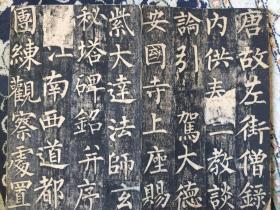 唐故左街僧錄
內供奉三教談
論引駕大德
安國寺上座賜
紫大達法師玄
秘塔碑銘并序
江南西道都
團練觀察處置